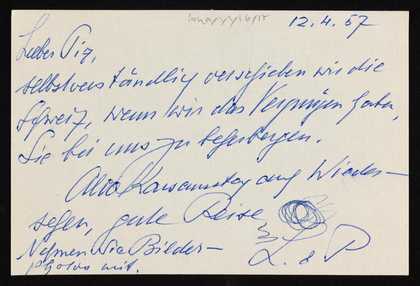 12.4.57
Lieber Pig,
selbstverständlich verschieben wir die
Schweiz, wenn wir das Vergnügen haben,
Sie bei uns zu beherbergen.
Also Karsamstag auf Wieder-
sehen, gute Reise
Nehmen Sie Bilder-
photos mit.
L. & P